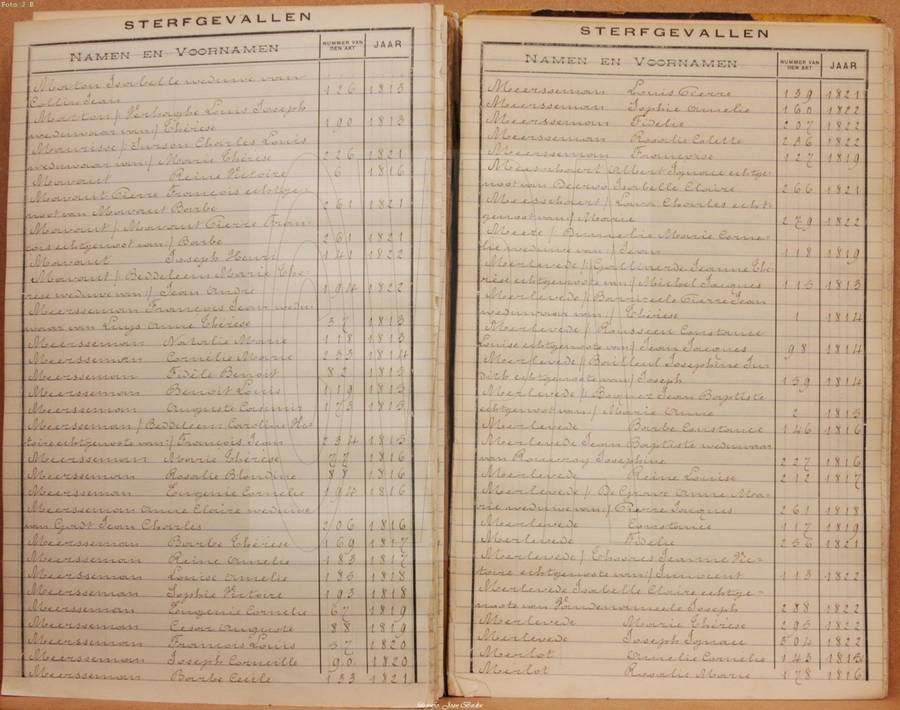 Foto : J B
STERFGEVALLEN
NAMEN EN VOORNAMEN NUMMER VAN DEN AKT JAAR
Marton Isabelle weduwe van
Collin Jean 126 1813
Matton / Verhaeghe Louis Joseph
weduwaar van / Thérèse 190 1813
Maurisse / Turson Charles Louis
weduwaar van / Marie Thérèse 226 1821
Mavaut Reine Victoire 6 1816
Mavaut Pierre François echtgen
noot van Mavaut Barbe 261 1821
Mavaut / Mavaut Pierre Fran-
çois echtgenoot van / Barbe 261 1821
Mavaut Joseph Henri 141 1822
Mavaut / Beddeleem Marie Thé-
rèse weduwe van / Jean André 194 1822
Meersseman François Jean wedu-
waar van Luys Anne Thérèse 37 1813
Meersseman Natalie Marie 118 1813
Meersseman Cornélie Marie 233 1814
Meersseman Fidèle Benoit 82 1815
Meersseman Benoit Louis 119 1815
Meersseman Auguste Casimir 173 1815
Meersseman / Beddeleem Caroline Vic-
toire echtgenoote van / François Jean 234 1815
Meersseman Marie Thérèse 77 1816
Meersseman Rosalie Blondine 88 1816
Meersseman Eugenie Cornélie 194 1816
Meersseman Anne Claire weduwe
van Godt Jean Charles 206 1816
Meersseman Barbe Thérèse 169 1817
Meersseman Reine Amelie 183 1817
Meersseman Louise Amelie 185 1818
Meersseman Sophie Victoire 193 1818
Meersseman Eugenie Cornelie 67 1819
Meersseman Cesar Auguste 88 1819
Meersseman François Louis 57 1820
Meersseman Joseph Corneille 90 1820
Meersseman Barbe Cecile 133 1821
STERFGEVALLEN
NAMEN EN VOORNAMEN NUMMER VAN DEN AKT JAAR
Meersseman Louis Pierre 139 1821
Meersseman Sophie Amelie 160 1822
Meersseman Fidelie 207 1822
Meersseman Rosalie Colette 236 1822
Meersseman Françoise 127 1819
Meesschaert Albert Ignace echtge-
noot van Isabelle Claire 266 1821
Meesschaert / Charles echt-
genoot van / Marie 279 1822
Meeze / Marie Corne-
lie weduwe van / Jean 118 1819
Merlevede / Jeanne Thé-
rèse echtgenoote van / Michel Jacques 115 1813
Merlevede / Pierre Jean
weduwaar van / Thérèse 1 1814
Merlevede / Rousseeu Constance
Louise echtgenoote van / Jean Jacques 98 1814
Merlevede / Bailleul Josephine Ju-
dith echtgenoote van / Joseph 139 1814
Merlevede / Jean Baptiste
echtgenoot van / Marie Anne 2 1815
Merlevede Barbe Constance 146 1816
Merlevede Jean Baptiste weduwaar
van Rouvroy Josephine 227 1816
Merlevede Reine Louise 212 1817
Merlevede / De Grave Anne Ma-
rie weduwe van / Pierre Jacques 261 1818
Merlevede Constance 117 1819
Merlevede Fidelie 256 1821
Merlevede / Jeanne Vic-
toire echtgenoote van / Innocent 113 1822
Merlevede Isabelle Claire echtge-
noote van Vandenameele Joseph 288 1822
Merlevede Marie Thérèse 295 1822
Merlevede Joseph Ignace 304 1822
Merlot Amelie Cornélie 143 1815
Merlot Rosalie Marie 178 1816